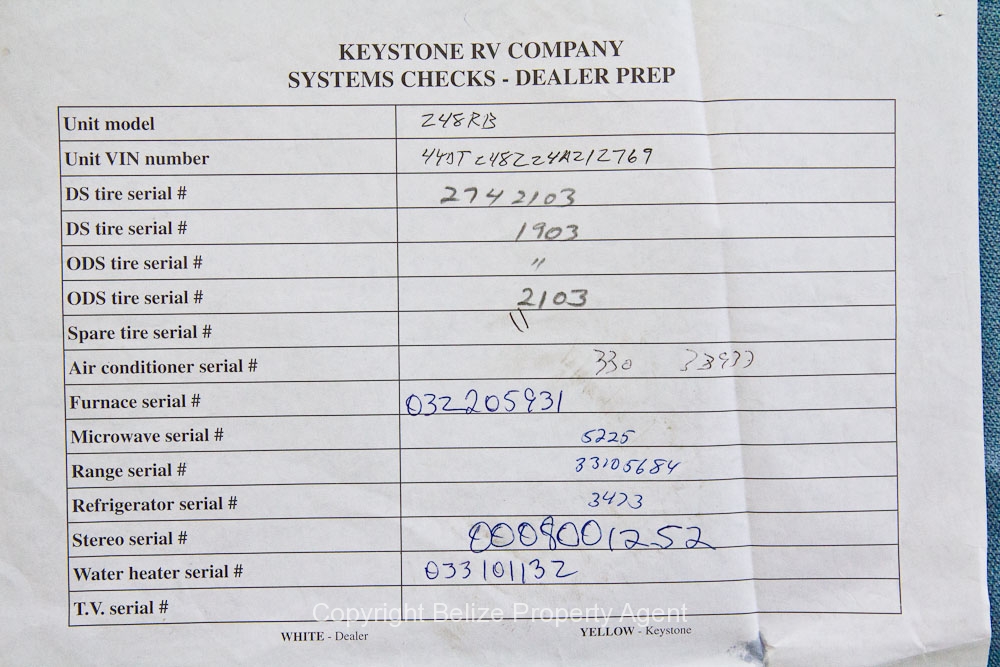 KEYSTONE RV COMPANY
SYSTEMS CHECKS - DEALER PREP
Unit model 248RB
Unit VIN number
DS tire serial # 2742103
DS tire serial # 1903
ODS tire serial # "
ODS tire serial # 2103
Spare tire serial # \\
Air conditioner serial # 330 33933
Furnace serial # 032205931
Microwave serial # 5225
Range serial # 33105684
Refrigerator serial # 3473
Stereo serial # 0008001252
Water heater serial # 033101132
T.V. serial #
Copyright Belize Property Agent
WHITE - Dealer YELLOW - Keystone